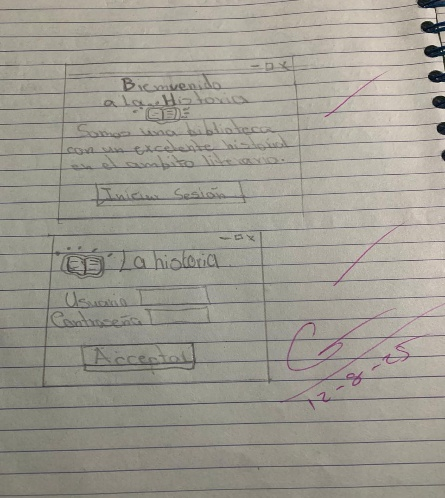 - □ x
Bienvenido
a La Historia
Somos una biblioteca
con un excelente historial
en el ambito literario.
Iniciar Sesión
- □ x
La historia
Usuario
Contraseña
Acceptar
12-8-25